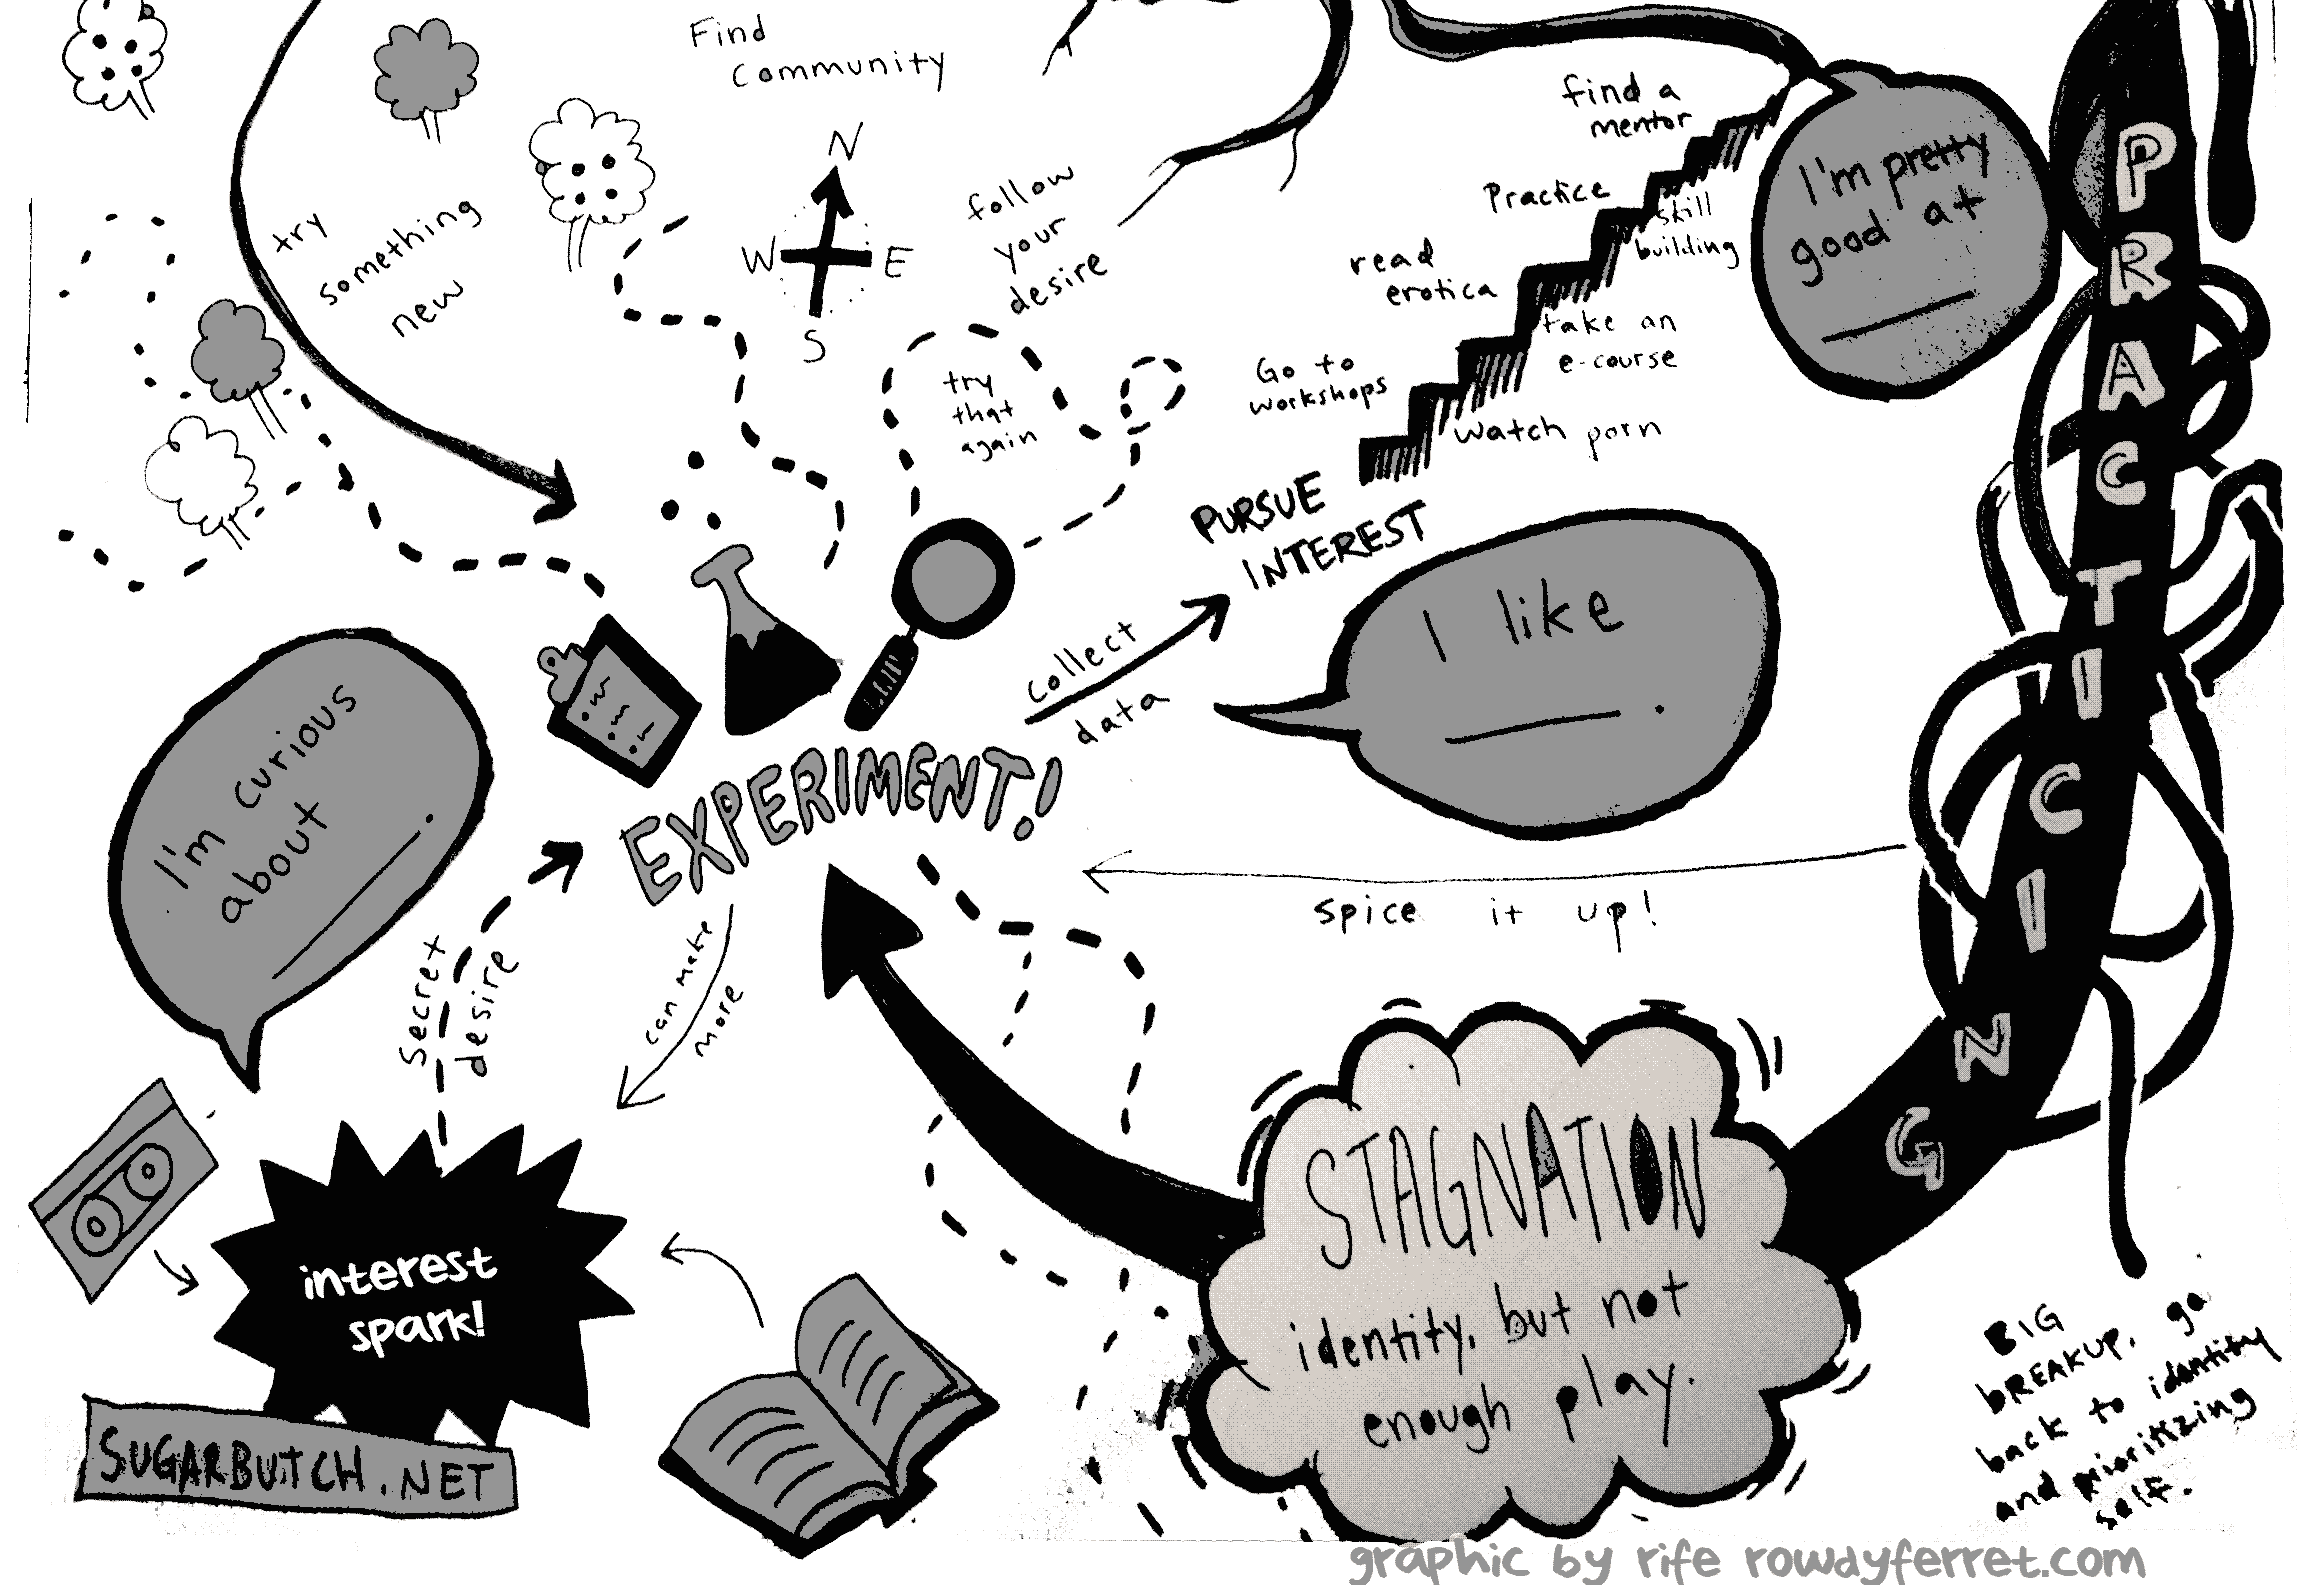 Find
community
find a
mentor
N
W
E
S
try
something
new
follow
your
desire
Practice
skill
building
I'm pretty
good at
read
erotica
take an
e-course
try
that
again
Go to
workshops
watch porn
PURSUE
INTEREST
PRACTICING
I like
.
collect
data
I'm curious
about
.
EXPERIMENT!
spice it up!
secret
desire
can make
more
STAGNATION
identity, but not
enough play.
interest
spark!
SUGARBUTCH.NET
BIG
BREAKUP, go
back to identity
and prioritizing
self.
graphic by rife rowdyferret.com